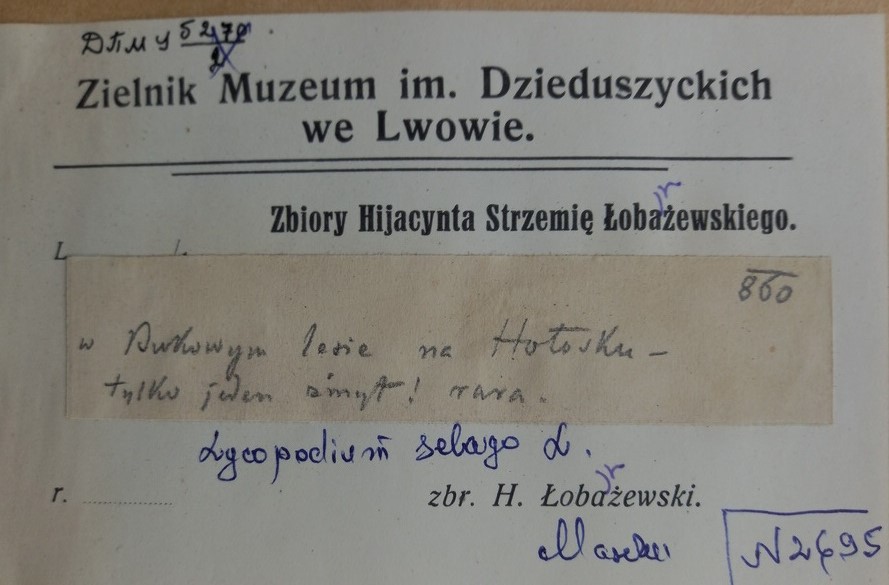 ДПМУ
Zielnik Muzeum im. Dzieduszyckich
we Lwowie.
Zbiory Hijacynta Strzemię Łobażewskiego.
L
860
w Bukowym lesie na Hołosku –
tylko jeden rara.
Lycopodium selago L.
r. zbr. H. Łobażewski.
N2695